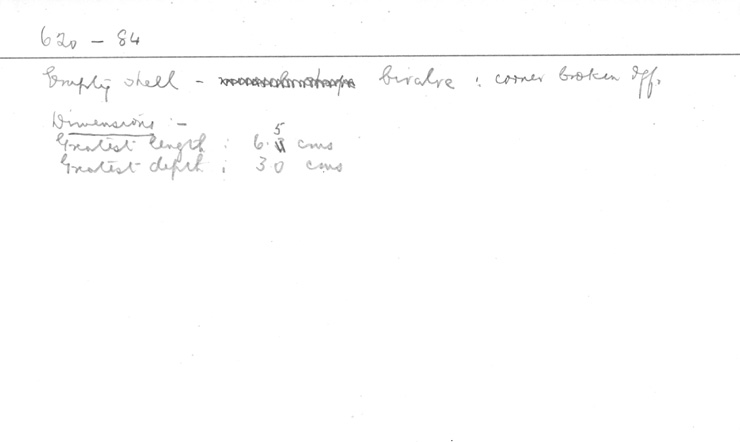 620 - 84
Empty shell - bivalve : corner broken off.
Dimensions :-
Greatest length : 6.5 cms
Greatest depth : 3 0 cms